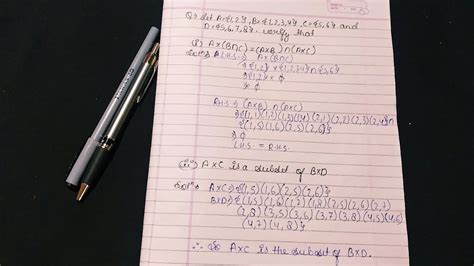 Q? Let A={1,2}, B={1,2,3,4}, C={5,6} and
D={5,6,7,8}. verify that
(i) A×(B∩C)=(A×B)∩(A×C)
L.H.S.⇒ A×(B∩C)
⇒{1,2}×{1,2,3,4}∩{5,6}
⇒{1,2}×ϕ
⇒ϕ
R.H.S.⇒ (A×B)∩(A×C)
⇒{(1,1)(1,2)(1,3)(1,4)(2,1)(2,2)(2,3)(2,4)}∩
{(1,5)(1,6)(2,5)(2,6)}
⇒ϕ
L.H.S. = R.H.S.
(ii) A×C is a subset of B×D
A×C⇒{(1,5)(1,6)(2,5)(2,6)}
B×D⇒{(1,5)(1,6)(1,7)(1,8)(2,5)(2,6)(2,7)
(2,8)(3,5)(3,6)(3,7)(3,8)(4,5)(4,6)
(4,7)(4,8)}
∴ A×C is the subset of B×D.